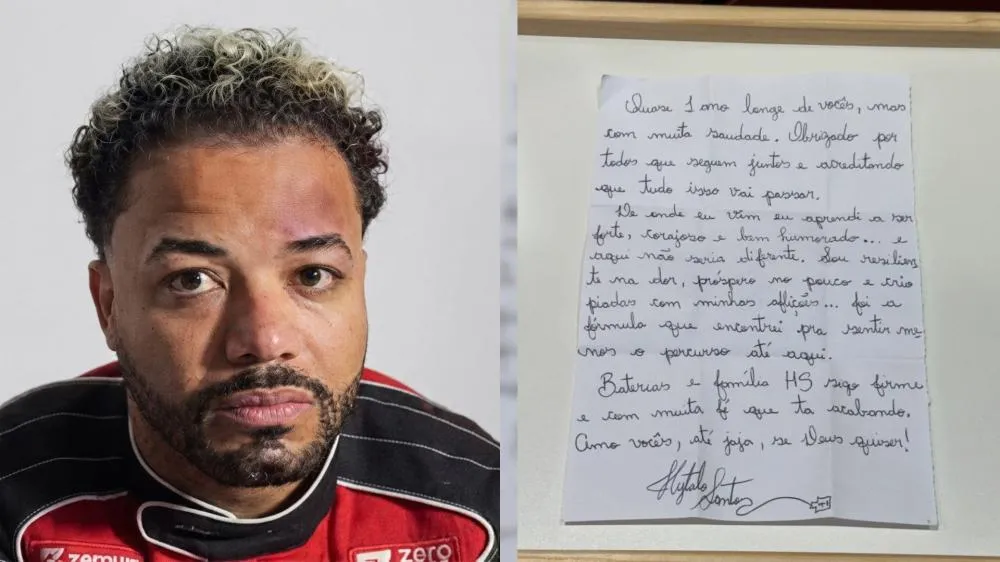 zemun
zero
Quase 1 ano longe de vocês, mas
com muita saudade. Obrigado por
todos que seguem juntos e acreditando
que tudo isso vai passar.
De onde eu vim eu aprendi a ser
forte, corajoso e bem humorado... e
aqui não seria diferente. Sou resilien
te na dor, próspero no pouco e crio
piadas com minhas aflições... foi a
fórmula que encontrei pra sentir me
nos o percurso até aqui.
Baterias e família HS sigo firme
e com muita fé que ta acabando.
Amo vocês, até jaja, se Deus quiser!
Hytalo Santos